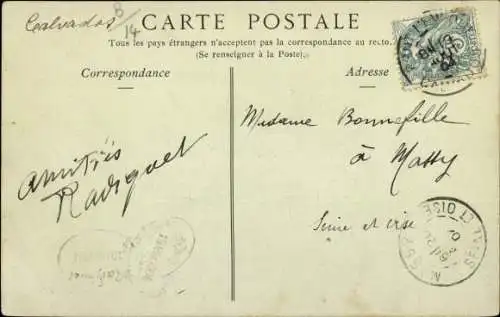 Calvados 8/14
CARTE POSTALE
Tous les pays étrangers n'acceptent pas la correspondance au recto.
(Se renseigner à la Poste).
Correspondance
Adresse
Madame Bonnefille
à Massy
Seine et oise
amitiés
Radiguet
SEINE ET OISE